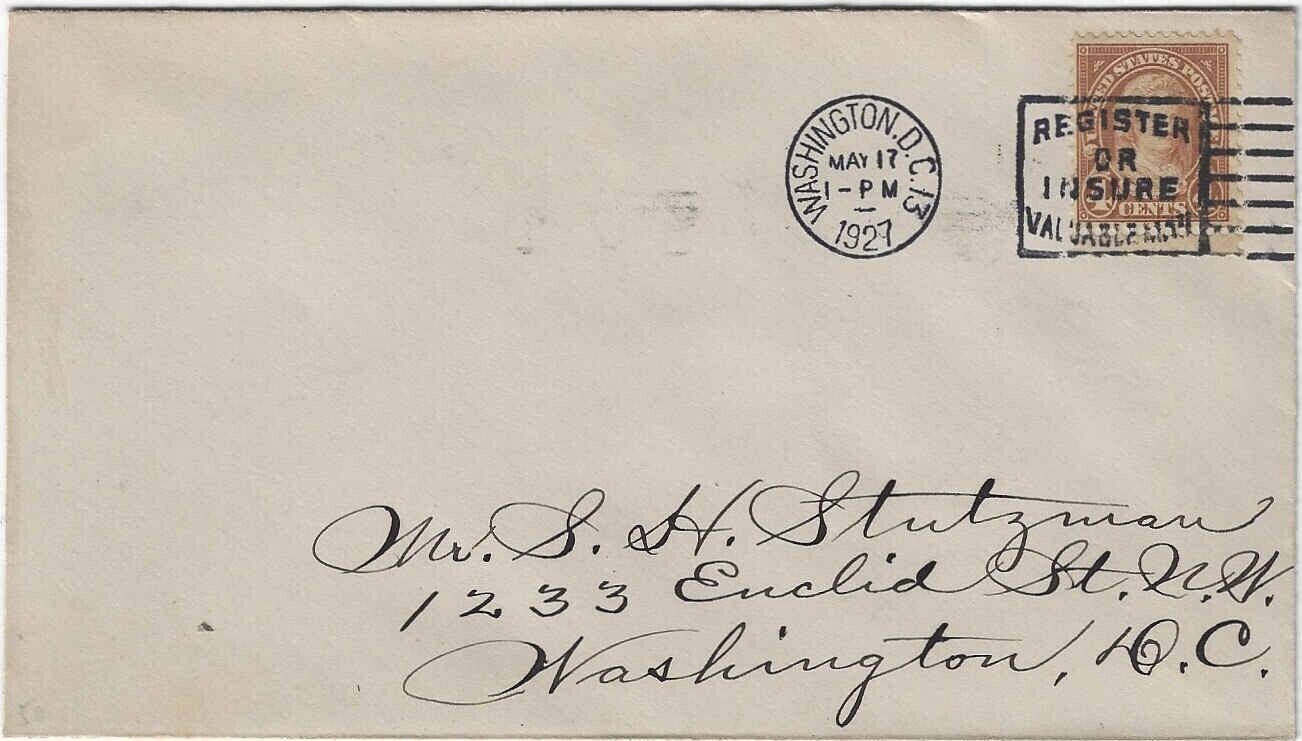 UNITED STATES POST
WASHINGTON, D.C. 13
MAY 17
1 - PM
1927
REGISTER
OR
INSURE
VALUABLE MAIL
4 CENTS
Mr. S. H. Stutzman
1233 Euclid St. N.W.
Washington, D.C.